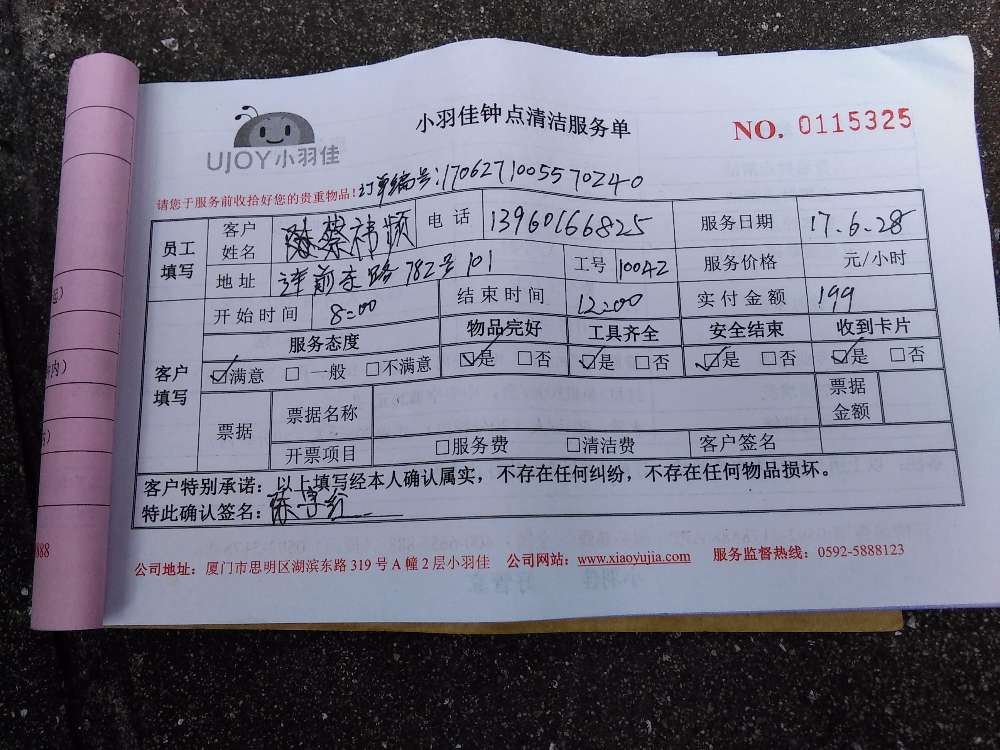 小羽佳钟点清洁服务单
NO. 0115325
UJOY小羽佳
请您于服务前收拾好您的贵重物品!订单编号:1706271005570240
员工填写 客户姓名 蔡祎颖 电话 13960166825 服务日期 17.6.28
地址 莲前东路782号101 工号 10042 服务价格 元/小时
开始时间 8:00 结束时间 12:00 实付金额 199
客户填写 服务态度 物品完好 工具齐全 安全结束 收到卡片
☑满意 □一般 □不满意 ☑是 □否 ☑是 □否 ☑是 □否 ☑是 □否
票据 票据名称 票据金额
开票项目 □服务费 □清洁费 客户签名
客户特别承诺:以上填写经本人确认属实,不存在任何纠纷,不存在任何物品损坏。
特此确认签名:
公司地址:厦门市思明区湖滨东路319号A幢2层小羽佳 公司网站:www.xiaoyujia.com 服务监督热线:0592-5888123
内)
888